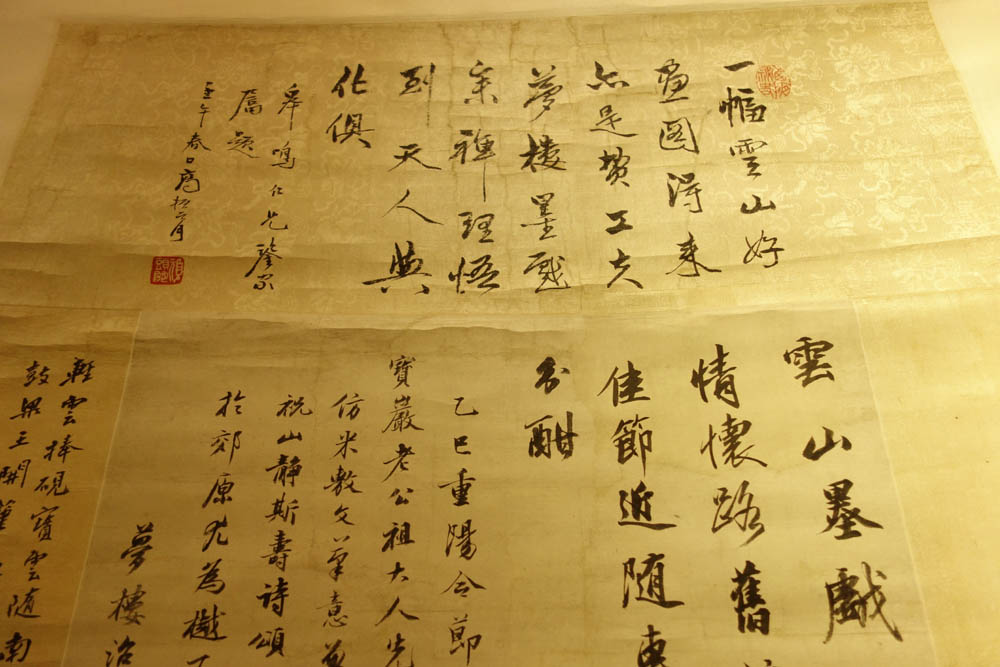 一幅雲山好
畫圖得來
亦是費工夫
夢樓墨戲
宗禪理悟
到天人與
化俱
皋鳴仁兄鑒家
屬題
壬午春日高
雲山墨戲
情懷路舊
佳節近隨
分酣
乙巳重陽令節
寶巖老公祖大人先
仿米敷文筆意
祝山靜斯壽詩頌
於郊原
夢樓治
輕雲捧硯寶雲隨
鼓